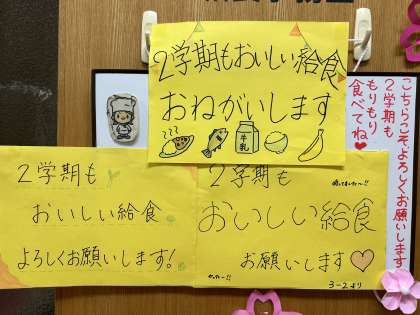 ２学期もおいしい給食
おねがいします
牛乳
こちらこそ、よろしくお願いします
２学期も
もりもり
食べてね♥
２学期も
おいしい給食
よろしくお願いします!
２学期も
おいしい給食
お願いします♡
3-2より